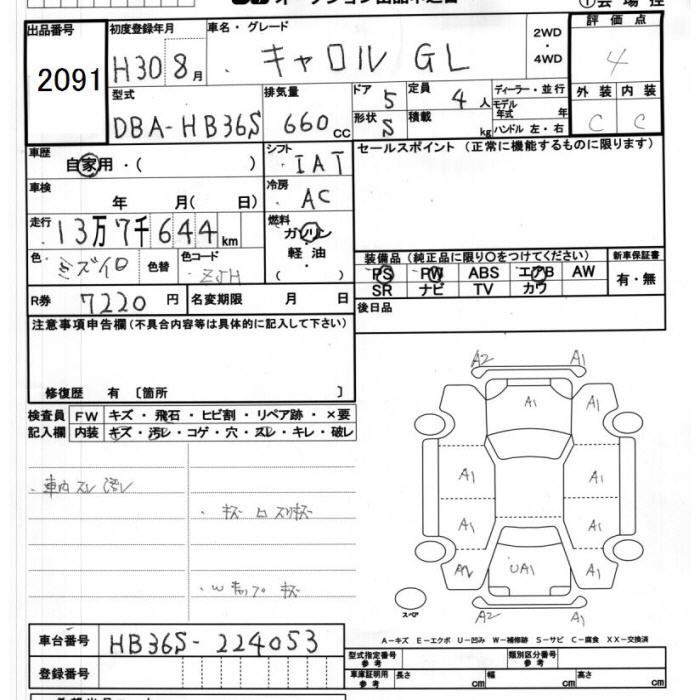 出品番号 初度登録年月 車名・グレード 2WD・4WD 評価点
2091 H30 8月 キャロル GL 4
型式 排気量 ドア 5 定員 4人 ディーラー・並行 外装 内装
DBA-HB36S 660cc 形状 S 積載 kg モデル年式 年 ハンドル 左・右 C C
車歴 シフト セールスポイント (正常に機能するものに限ります)
自家用・( ) IAT
車検 冷房
年 月( 日) AC
走行 13万7千644km 燃料
ガソリン・軽油・( )
色 ミズイロ 色替 色コード ZJH
装備品(純正品に限り○をつけてください) 新車保証書
PS PW ABS エアB AW 有・無
SR ナビ TV カワ
R券 7220円 名変期限 月 日 後日品
注意事項申告欄(不具合内容等は具体的に記入して下さい)
修復歴 有 〔箇所 〕
検査員 FW キズ・飛石・ヒビ割・リペア跡・×要
記入欄 内装 キズ・汚レ・コゲ・穴・スレ・キレ・破レ
・車内スレ汚レ
A2 A1
A1 A1
A1 A1
A1 A1
A2 UA1 A1
A2 A1
スペア
A-キズ E-エクボ U-凹み W-補修跡 S-サビ C-腐食 XX-交換済
車台番号 HB36S-224053
登録番号
型式指定番号 参考 類別区分番号 参考
車庫証明用 参考 長さ cm 幅 cm 高さ cm